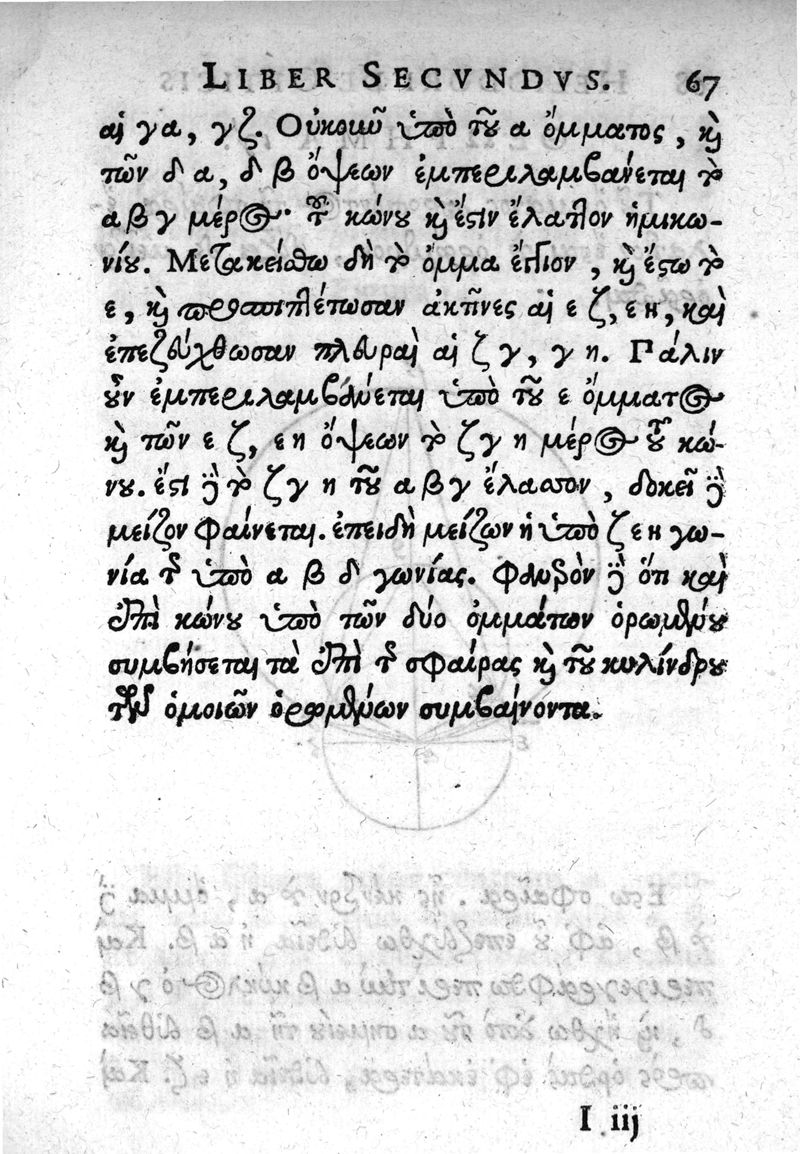 LIBER SECVNDVS. 67
αἱ γα, γζ. Οὐκοῦν ὑπὸ τοῦ α ὄμματος, καὶ
τῶν δ α, δ β ὄψεων ἐμπεριλαμβάνεται τὸ
α β γ μέρος τοῦ κώνου καὶ ἔστιν ἔλαττον ἡμικω-
νίου. Μετακείσθω δὴ τὸ ὄμμα ἔγγιον, καὶ ἔστω τὸ
ε, καὶ προσπιπλέτωσαν ἀκτῖνες αἱ ε ζ, ε η, καὶ
ἐπεζεύχθωσαν πλευραὶ αἱ ζ γ, γ η. Πάλιν
οὖν ἐμπεριλαμβάνεται ὑπὸ τοῦ ε ὄμματος
καὶ τῶν ε ζ, ε η ὄψεων τὸ ζ γ η μέρος τοῦ κώ-
νου. ἔστι δὲ τὸ ζ γ η τοῦ α β γ ἔλασσον, δοκεῖ δὲ
μεῖζον φαίνεται. ἐπειδὴ μείζων ἡ ὑπὸ ζ ε η γω-
νία τῆς ὑπὸ α β δ γωνίας. Φανερὸν δὲ ὅτι καὶ
ἐπὶ κώνου ὑπὸ τῶν δύο ὀμμάτων ὁρωμένου
συμβήσεται τὰ ἐπὶ τῆς σφαίρας καὶ τοῦ κυλίνδρου
τῶν ὁμοιῶν ὁρωμένων συμβαίνοντα.
I iij